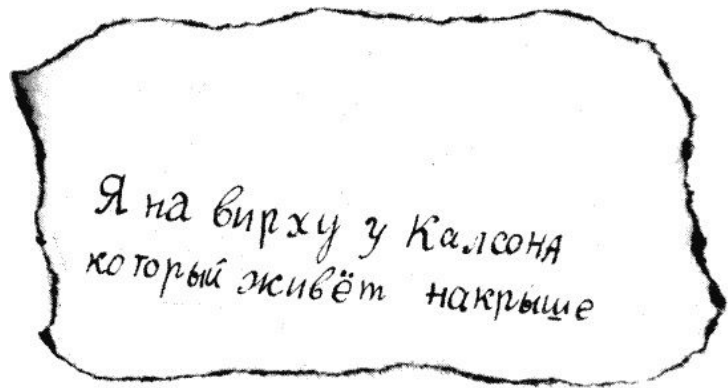 Я на вирху у Калсона
который живёт накрыше